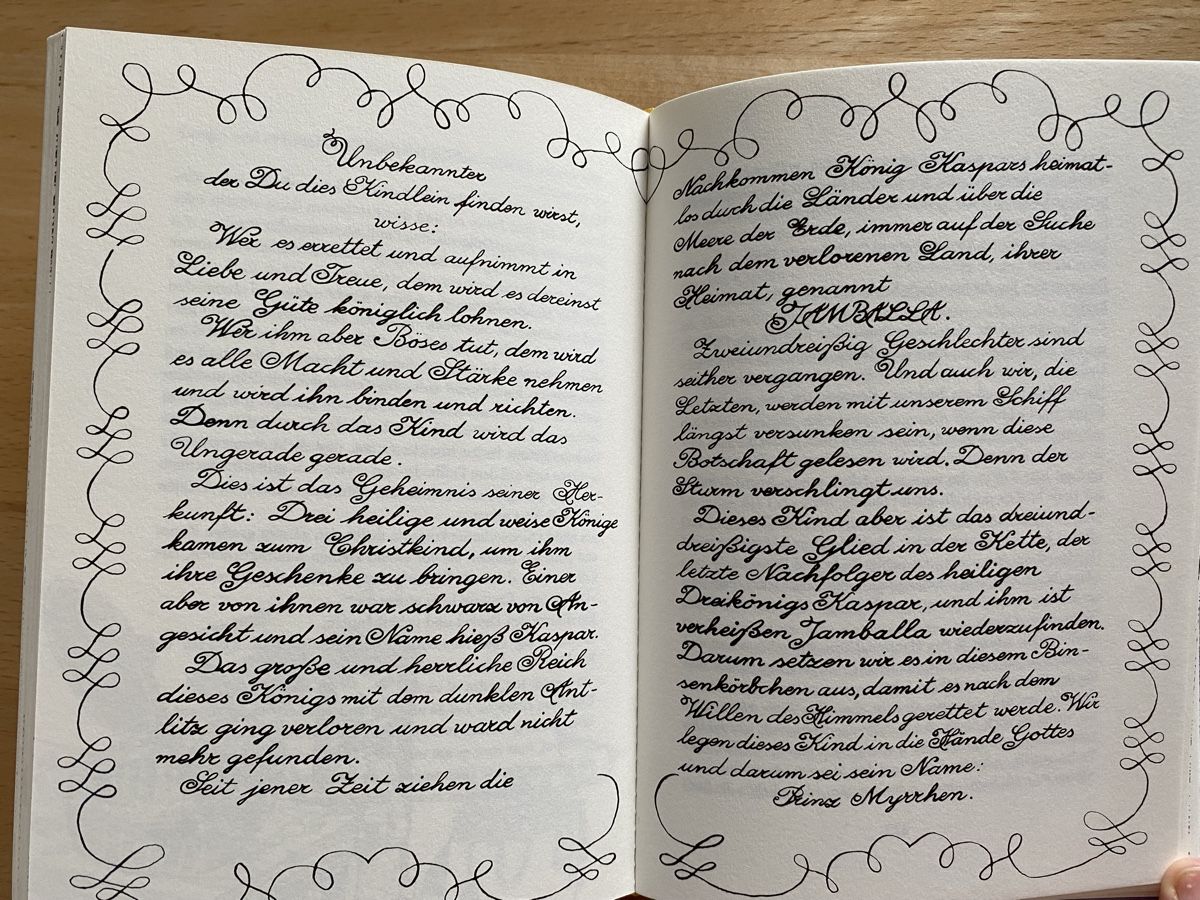 Unbekannter
der Du dies Kindlein finden wirst,
wisse:
Wer es errettet und aufnimmt in
Liebe und Treue, dem wird es dereinst
seine Güte königlich lohnen.
Wer ihm aber Böses tut, dem wird
es alle Macht und Stärke nehmen
und wird ihn binden und richten.
Denn durch das Kind wird das
Ungerade gerade.
Dies ist das Geheimnis seiner Her-
kunft: Drei heilige und weise Könige
kamen zum Christkind, um ihm
ihre Geschenke zu bringen. Einer
aber von ihnen war schwarz von An-
gesicht und sein Name hieß Kaspar.
Das große und herrliche Reich
dieses Königs mit dem dunklen Ant-
litz ging verloren und ward nicht
mehr gefunden.
Seit jener Zeit ziehen die
Nachkommen König Kaspars heimat-
los durch die Länder und über die
Meere der Erde, immer auf der Suche
nach dem verlorenen Land, ihrer
Heimat, genannt
JAMBALLA.
Zweiunddreißig Geschlechter sind
seither vergangen. Und auch wir, die
Letzten, werden mit unserem Schiff
längst versunken sein, wenn diese
Botschaft gelesen wird. Denn der
Sturm verschlingt uns.
Dieses Kind aber ist das dreiund-
dreißigste Glied in der Kette, der
letzte Nachfolger des heiligen
Dreikönigs Kaspar, und ihm ist
verheißen Jamballa wiederzufinden.
Darum setzen wir es in diesem Bin-
senkörbchen aus, damit es nach dem
Willen des Himmels gerettet werde. Wir
legen dieses Kind in die Hände Gottes
und darum sei sein Name:
Prinz Myrrhen.